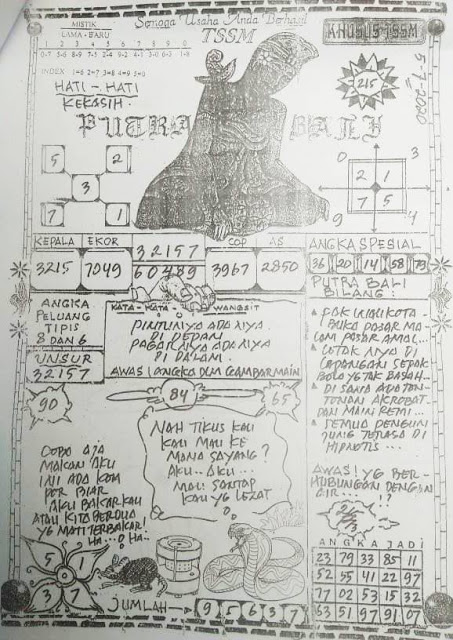 Semoga Usaha Anda Berhasil
MISTIK
LAMA - BARU
TSSM
KHUSUS TSSM
1 2 3 4 5 6 7 8 9 0
INDEX 1=6 2=7 3=8 4=9 5=0
5-7-2020
215
HATI - HATI
KEKASIH.
PUTRA BALI
5 2
3
7 1
0 3
2 1
7 5
9 4
KEPALA EKOR
3215 7049
32157
60489
COP AS
3967 2850
ANGKA SPESIAL
36 20 14 58 79
PUTRA BALI
BILANG :
ANGKA
PELUANG
TIPIS
8 DAN 6
UNSUR
32157
KATA - KATA WANGSIT
PINTUNYA ADANYA
DI DEPAN
PAGARNYA ADANYA
DI DALAM.
AWAS! ANGKA DLM GAMBAR MAIN
PAK WALIKOTA -
BUKA PASAR MA
LAM PASAR AMAL...
LETAK NYA DI
LAPANGAN SEPAK
BOLA YG TAK BASAH...
DI SANA ADA TON
TONAN AKROBAT
DAN MAIN REMI...
SEMUA PENGUN
JUNG TERASA DI
HIPNOTIS...
90
84
65
COBA AJA
MAKAN AKU
INI ADA KOM
POR BIAR
AKU BAKAR KAU
ATAU KITA BERDUA
YG MATI TERBAKAR!
HA...HA..
NAH TIKUS KAU
KAU MAU KE
MANA SAYANG ?
AKU.. AKU...
MAU SANTAP
KAU YG LEZAT
AWAS! YG BER-
HUBUNGAN DENGAN
AIR.... !?
5 0
1
3 7
JUMLAH → 9 5 6 3 7
ANGKA JADI
23 79 33 85 11
52 55 41 22 97
77 02 53 15 32
63 51 97 91 07